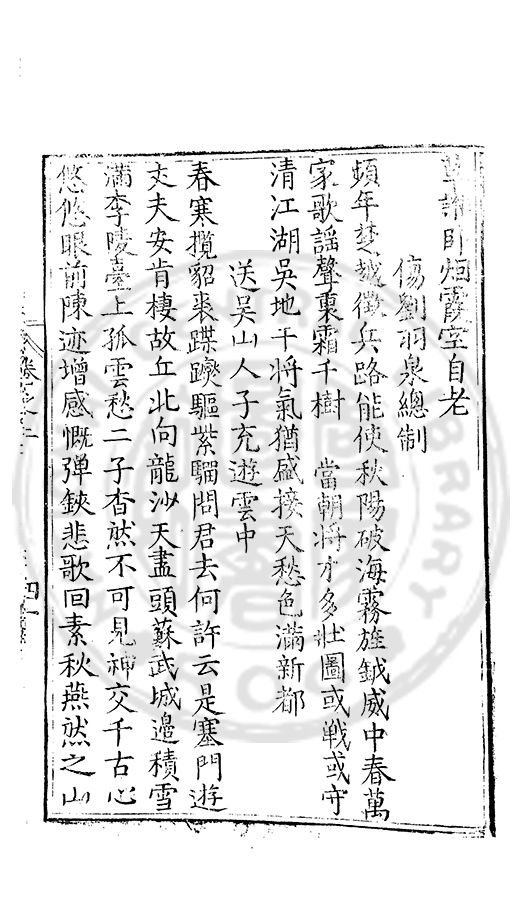 草講師烟霞室自老
傷劉羽泉總制
頻年楚越徵兵路能使秋陽破海霧旌鉞威中春萬
家歌謡聲裏霜千樹　當朝將才多壯圖或戰或守
清江湖吳地干將氣猶盛接天愁色滿新都
送吳山人子充遊雲中
春寒攬貂裘蹀躞驅紫騮問君去何許云是塞門遊
丈夫安肯棲故丘北向龍沙天盡頭蘇武城邉積雪
滿李陵臺上孤雲愁二子杳然不可見神交千古心
悠悠眼前陳迹增感慨弹鋏悲歌回素秋燕然之山